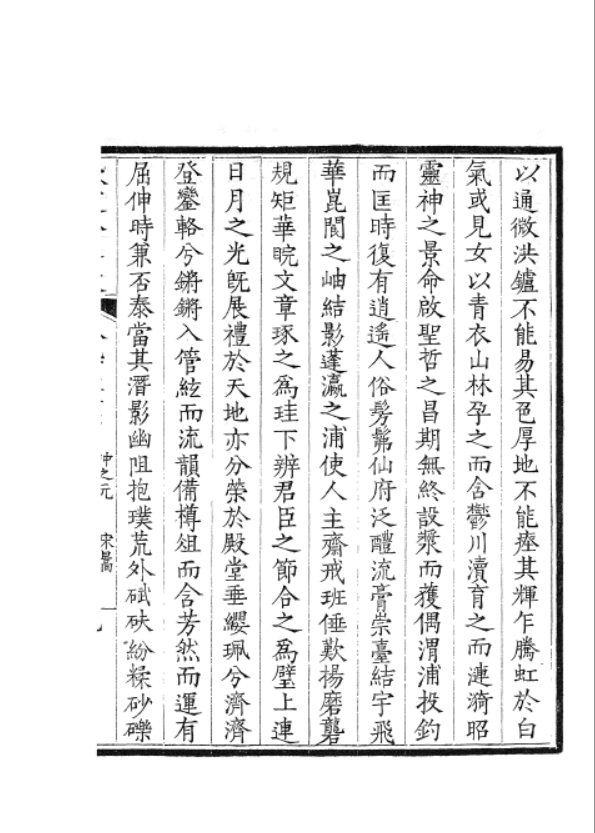 以通微洪鑪不能易其色厚地不能瘞其輝乍騰虹於白
氣或見女以青衣山林孕之而含鬱川瀆育之而漣漪昭
靈神之景命啟聖哲之昌期無終設漿而獲偶渭浦投鈞
而匡時復有逍遙人俗髣髴仙府泛醴流膏崇臺結宇飛
華崑閬之岫結影蓬瀛之浦使人主齋戒班倕歎揚磨礱
規矩華睆文章琢之為珪下辨君臣之節合之為璧上連
日月之光旣展禮於天地亦分榮於殿堂垂纓珮兮濟濟
登鑾輅兮鏘鏘入管絃而流韻備樽俎而含芳然而運有
屈伸時兼否泰當其潛影幽阻抱璞荒外碔砆紛糅砂礫